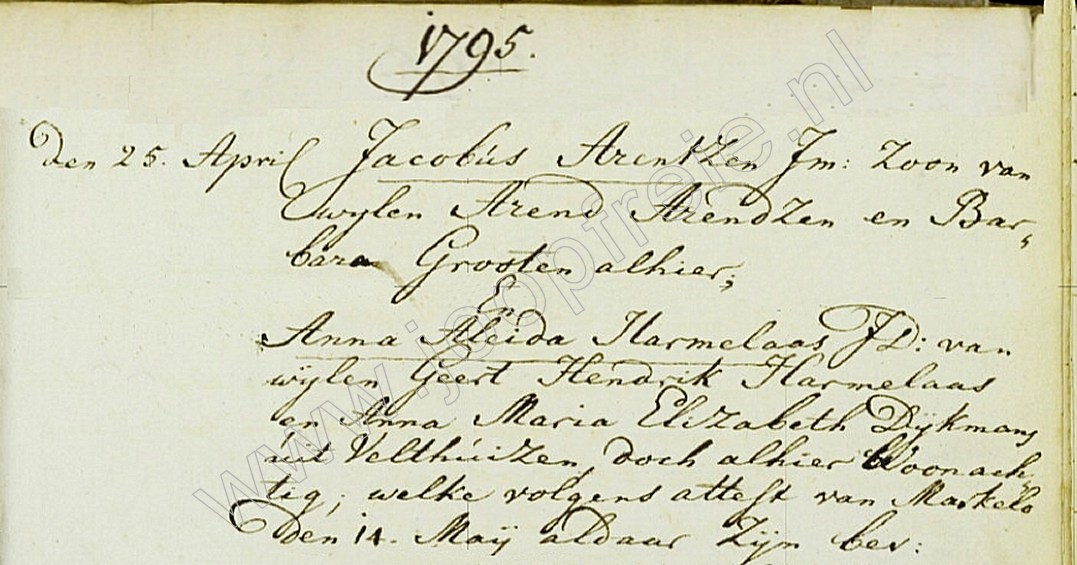 1795.
Den 25. April Jacobús Arentzen Jm: zoon van
wylen Arend Arendzen en Bar„
bara Grooten alhier;
En
Anna Aleida Harmelaas JD: van
wijlen Geert Hendrik Harmelaas
en Anna Maria Elizabeth Dijkmans
úit Velthúizen, doch alhier Woonach„
tig; welke volgens attest van Markelo
den 14. Maij aldaar zijn bev:
www.jaapfreie.nl